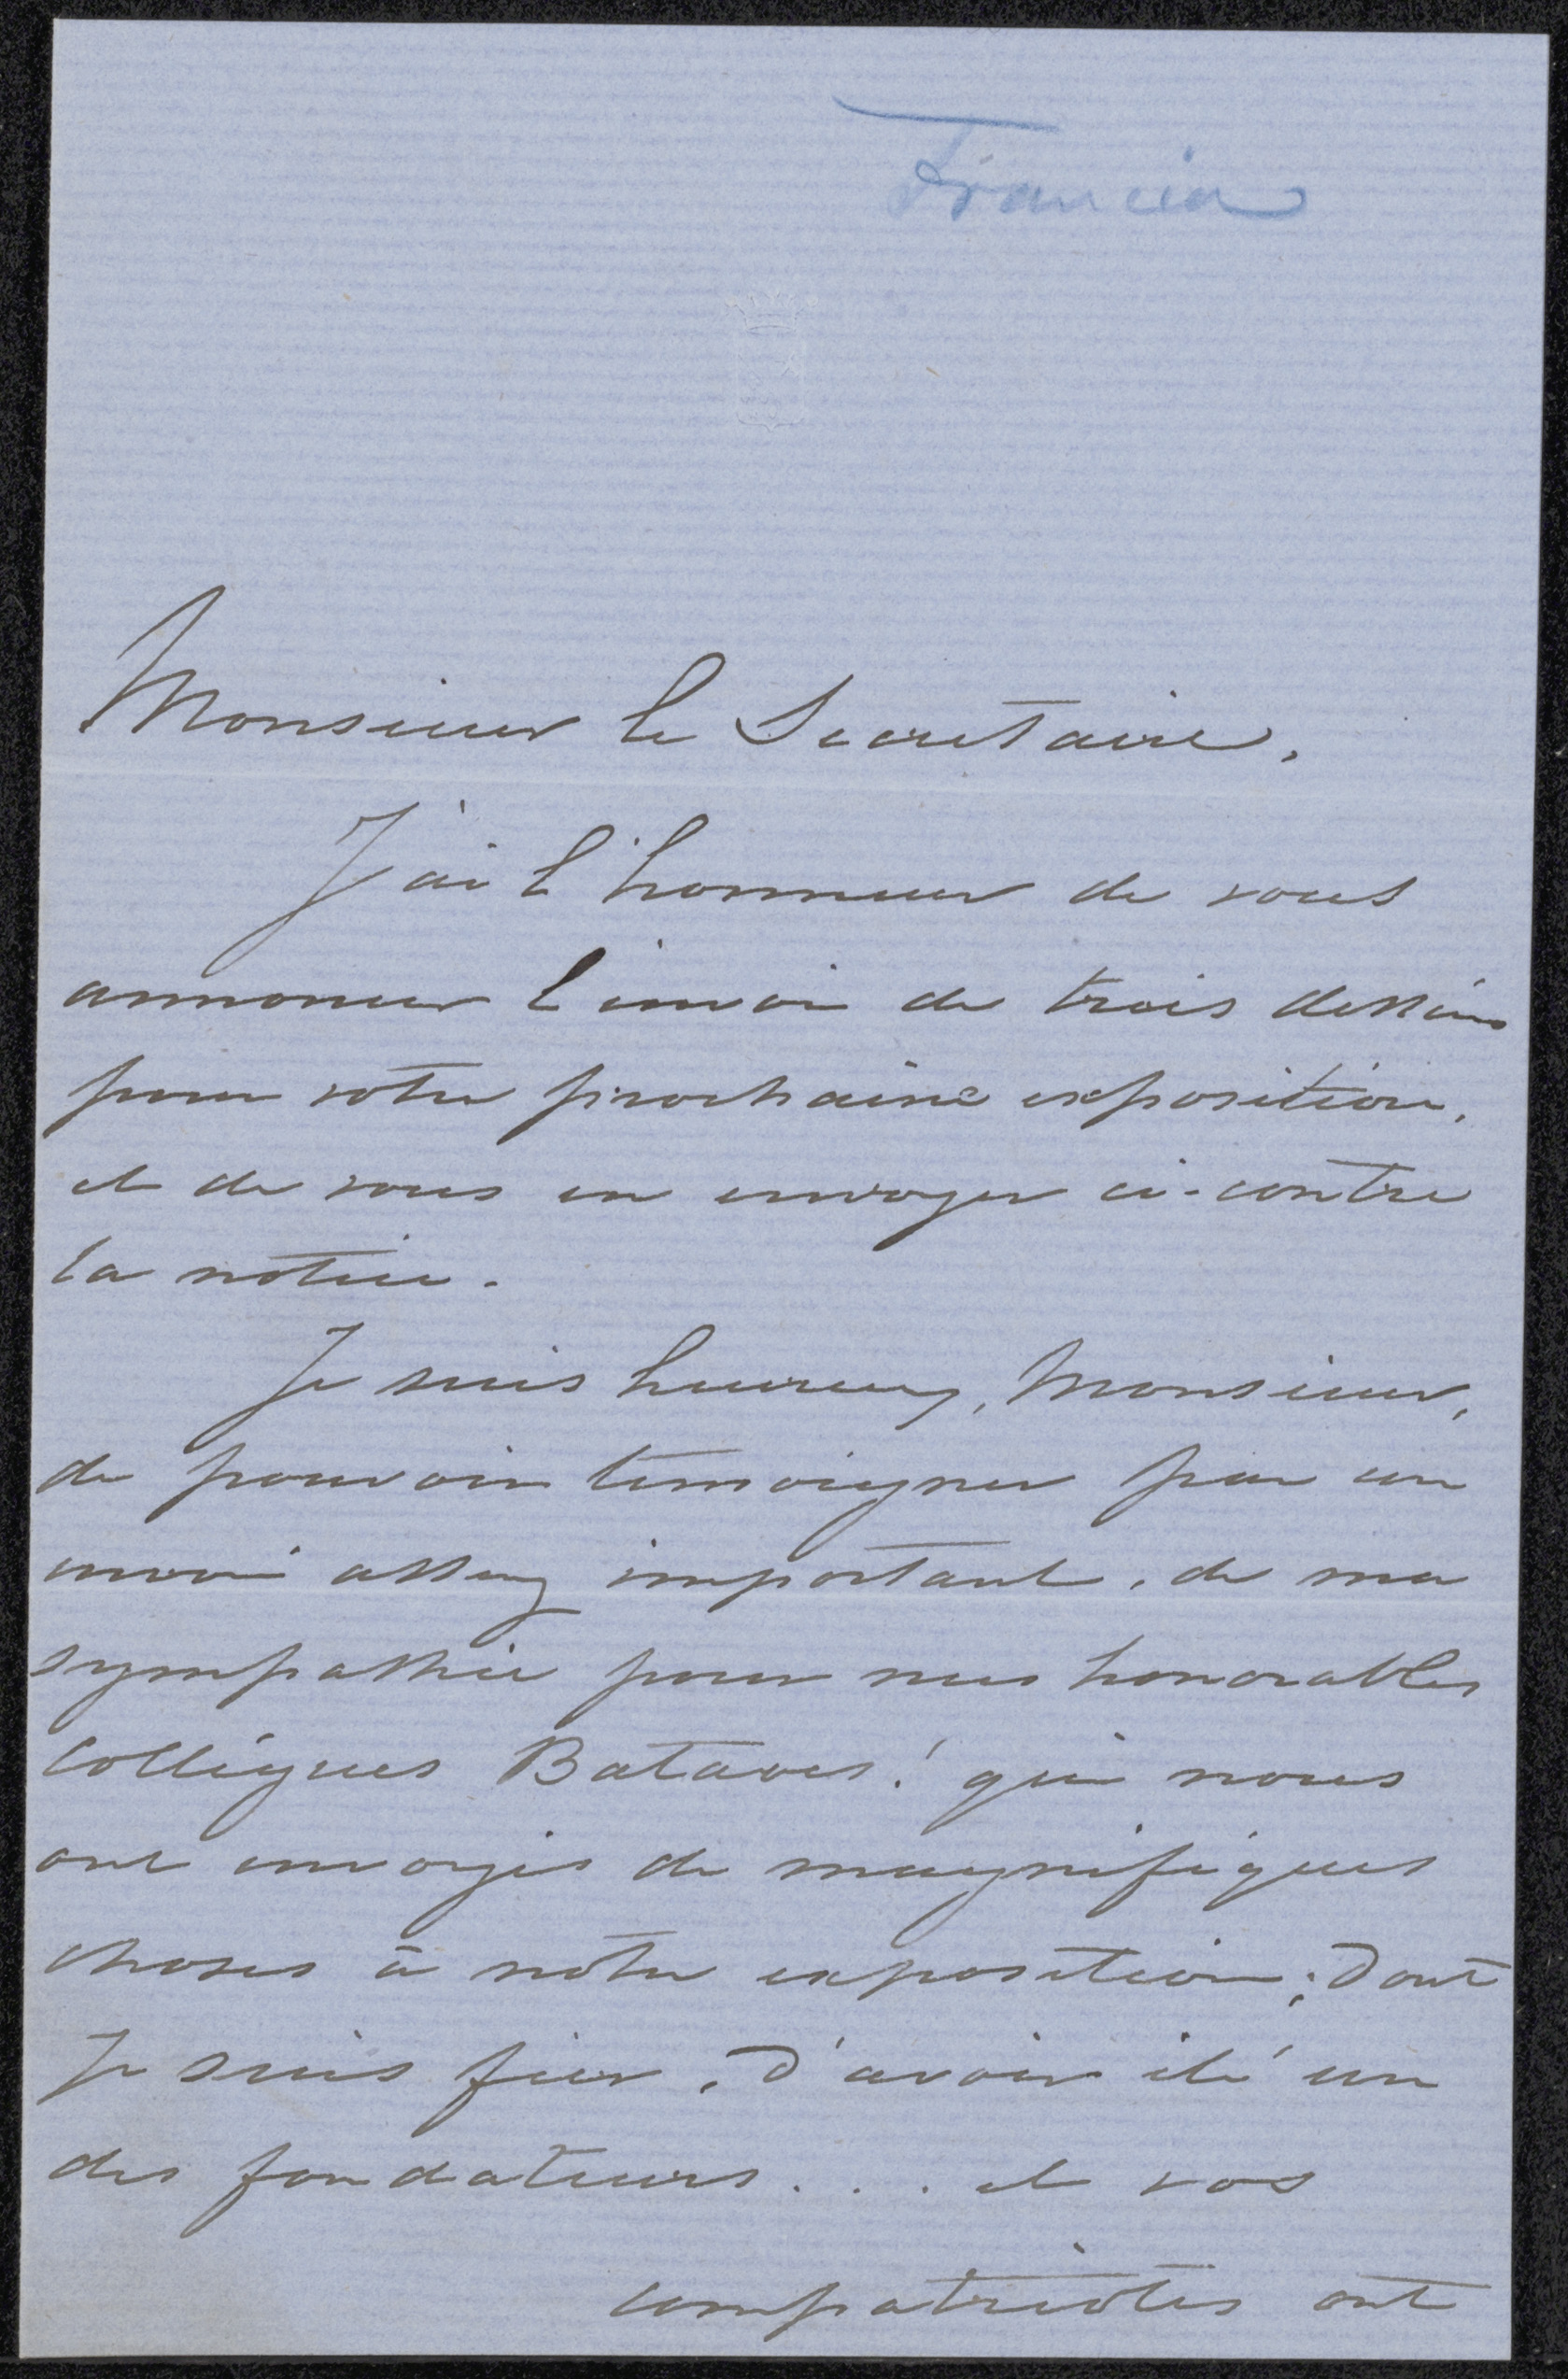 Francia
Monsieur le Secretaire,
J'ai l'honneur de vous
annoncer l'envoi de trois dessins
pour votre prochaine exposition,
et de vous en envoyer ci-contre
la notice.
Je suis heureux, Monsieur,
de pouvoir temoigner par un
envoi assez important, de ma
sympathie pour nos honorables
collégues Bataves! qui nous
ont envoyés de magnifiques
choses à notre exposition; dont
Je suis fier, d'avoir été un
des fondateurs... et vos
compatriotes ont